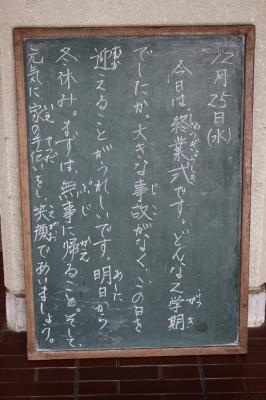 12月25日(水)
今日は終業式です。どんな2学期
でしたか。大きな事故がなく、この日を
迎えることがうれしいです。明日から
冬休み。まずは、無事に帰ること。そして、
元気に家の手伝いをし笑顔であいましょう。